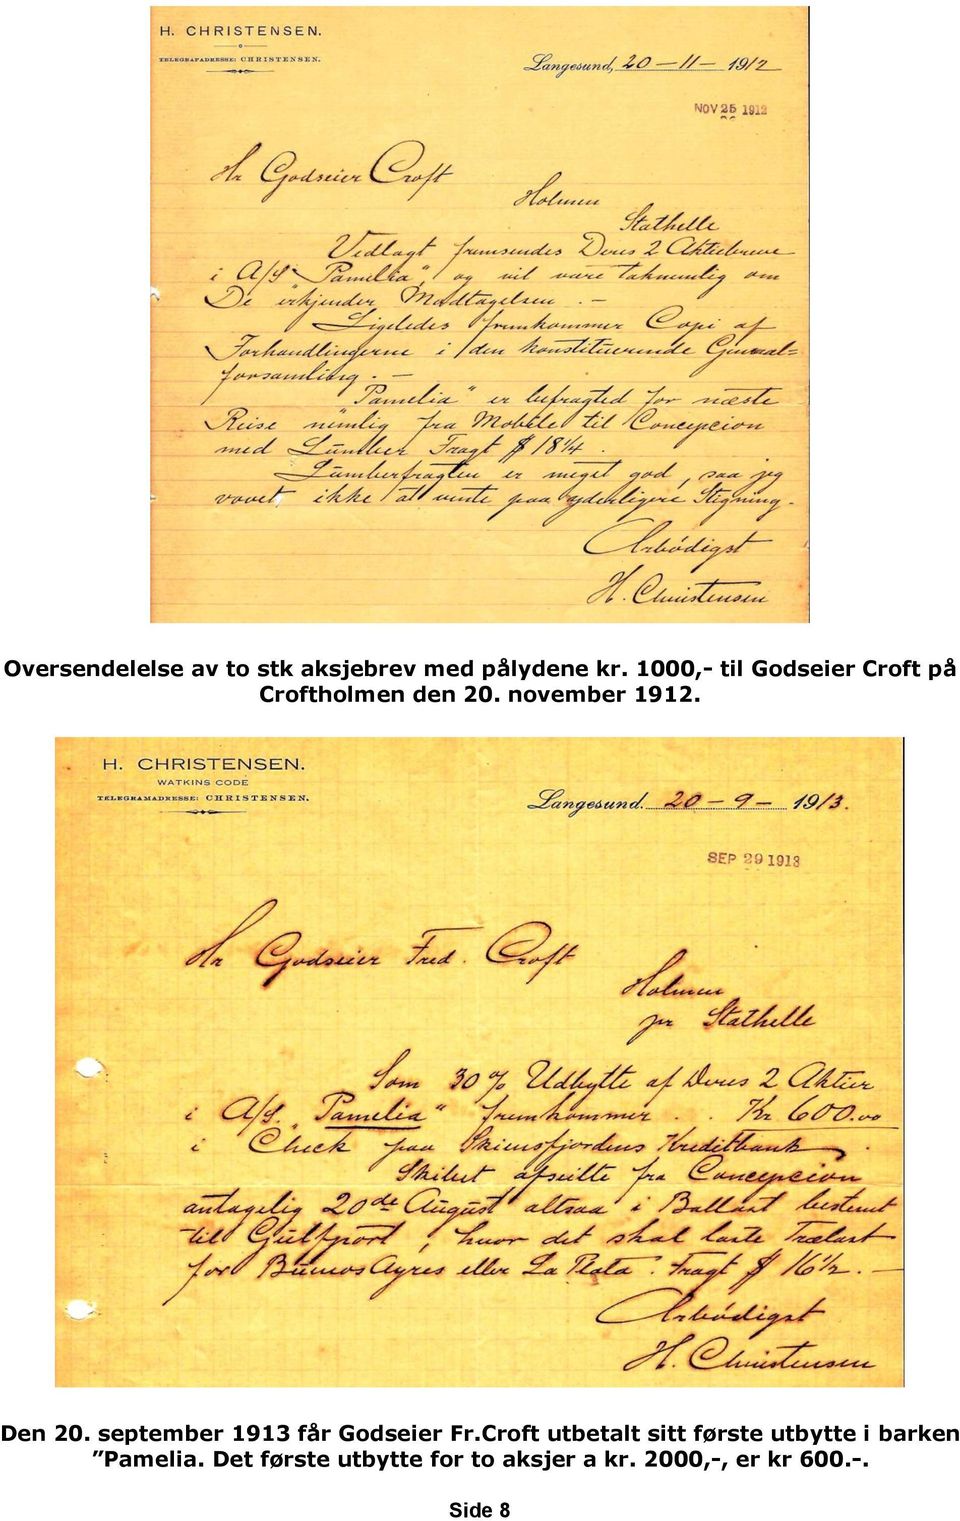 H. CHRISTENSEN.
TELEGRAFADRESSE: CHRISTENSEN.
Langesund, 20 - 11 - 1912
NOV 25 1912
Hr Godseier Croft
Holmen
Stathelle
Vedlagt fremsendes Deres 2 Aktiebreve
i A/S "Pamelia", og vil være taknemlig om
De erkjender Modtagelsen. -
Ligeledes fremkommer Copi af
Forhandlingerne i den konstituerende General=
forsamling. -
"Pamelia" er befragted for næste
Reise nemlig fra Mobile til Concepcion
med Lumber Fragt $ 18 1/4.
Lumberfragten er meget god, saa jeg
vovet ikke at vente paa yderligere Stigning.
Ærbödigst
H. Christensen
Oversendelelse av to stk aksjebrev med pålydene kr. 1000,- til Godseier Croft på
Croftholmen den 20. november 1912.
H. CHRISTENSEN.
WATKINS CODE
TELEGRAMADRESSE: CHRISTENSEN.
Langesund. 20 - 9 - 1913.
SEP 29 1913
Hr Godseier Fred. Croft
Holmen
pr Stathelle
Som 30% Udbytte af Deres 2 Aktier
i A/S. "Pamelia" fremkommer . . Kr 600.00
i Check paa Skiensfjordens Kreditbank,
Skibet afseilte fra Concepcion
antagelig 20de August altsaa i Ballast bestemt
til Gulfport, hvor det skal laste Trælast
for Buenos Ayres eller La Plata. Fragt $ 16 1/2. -
Ærbödigst
H. Christensen
Den 20. september 1913 får Godseier Fr.Croft utbetalt sitt første utbytte i barken
”Pamelia. Det første utbytte for to aksjer a kr. 2000,-, er kr 600.-.
Side 8